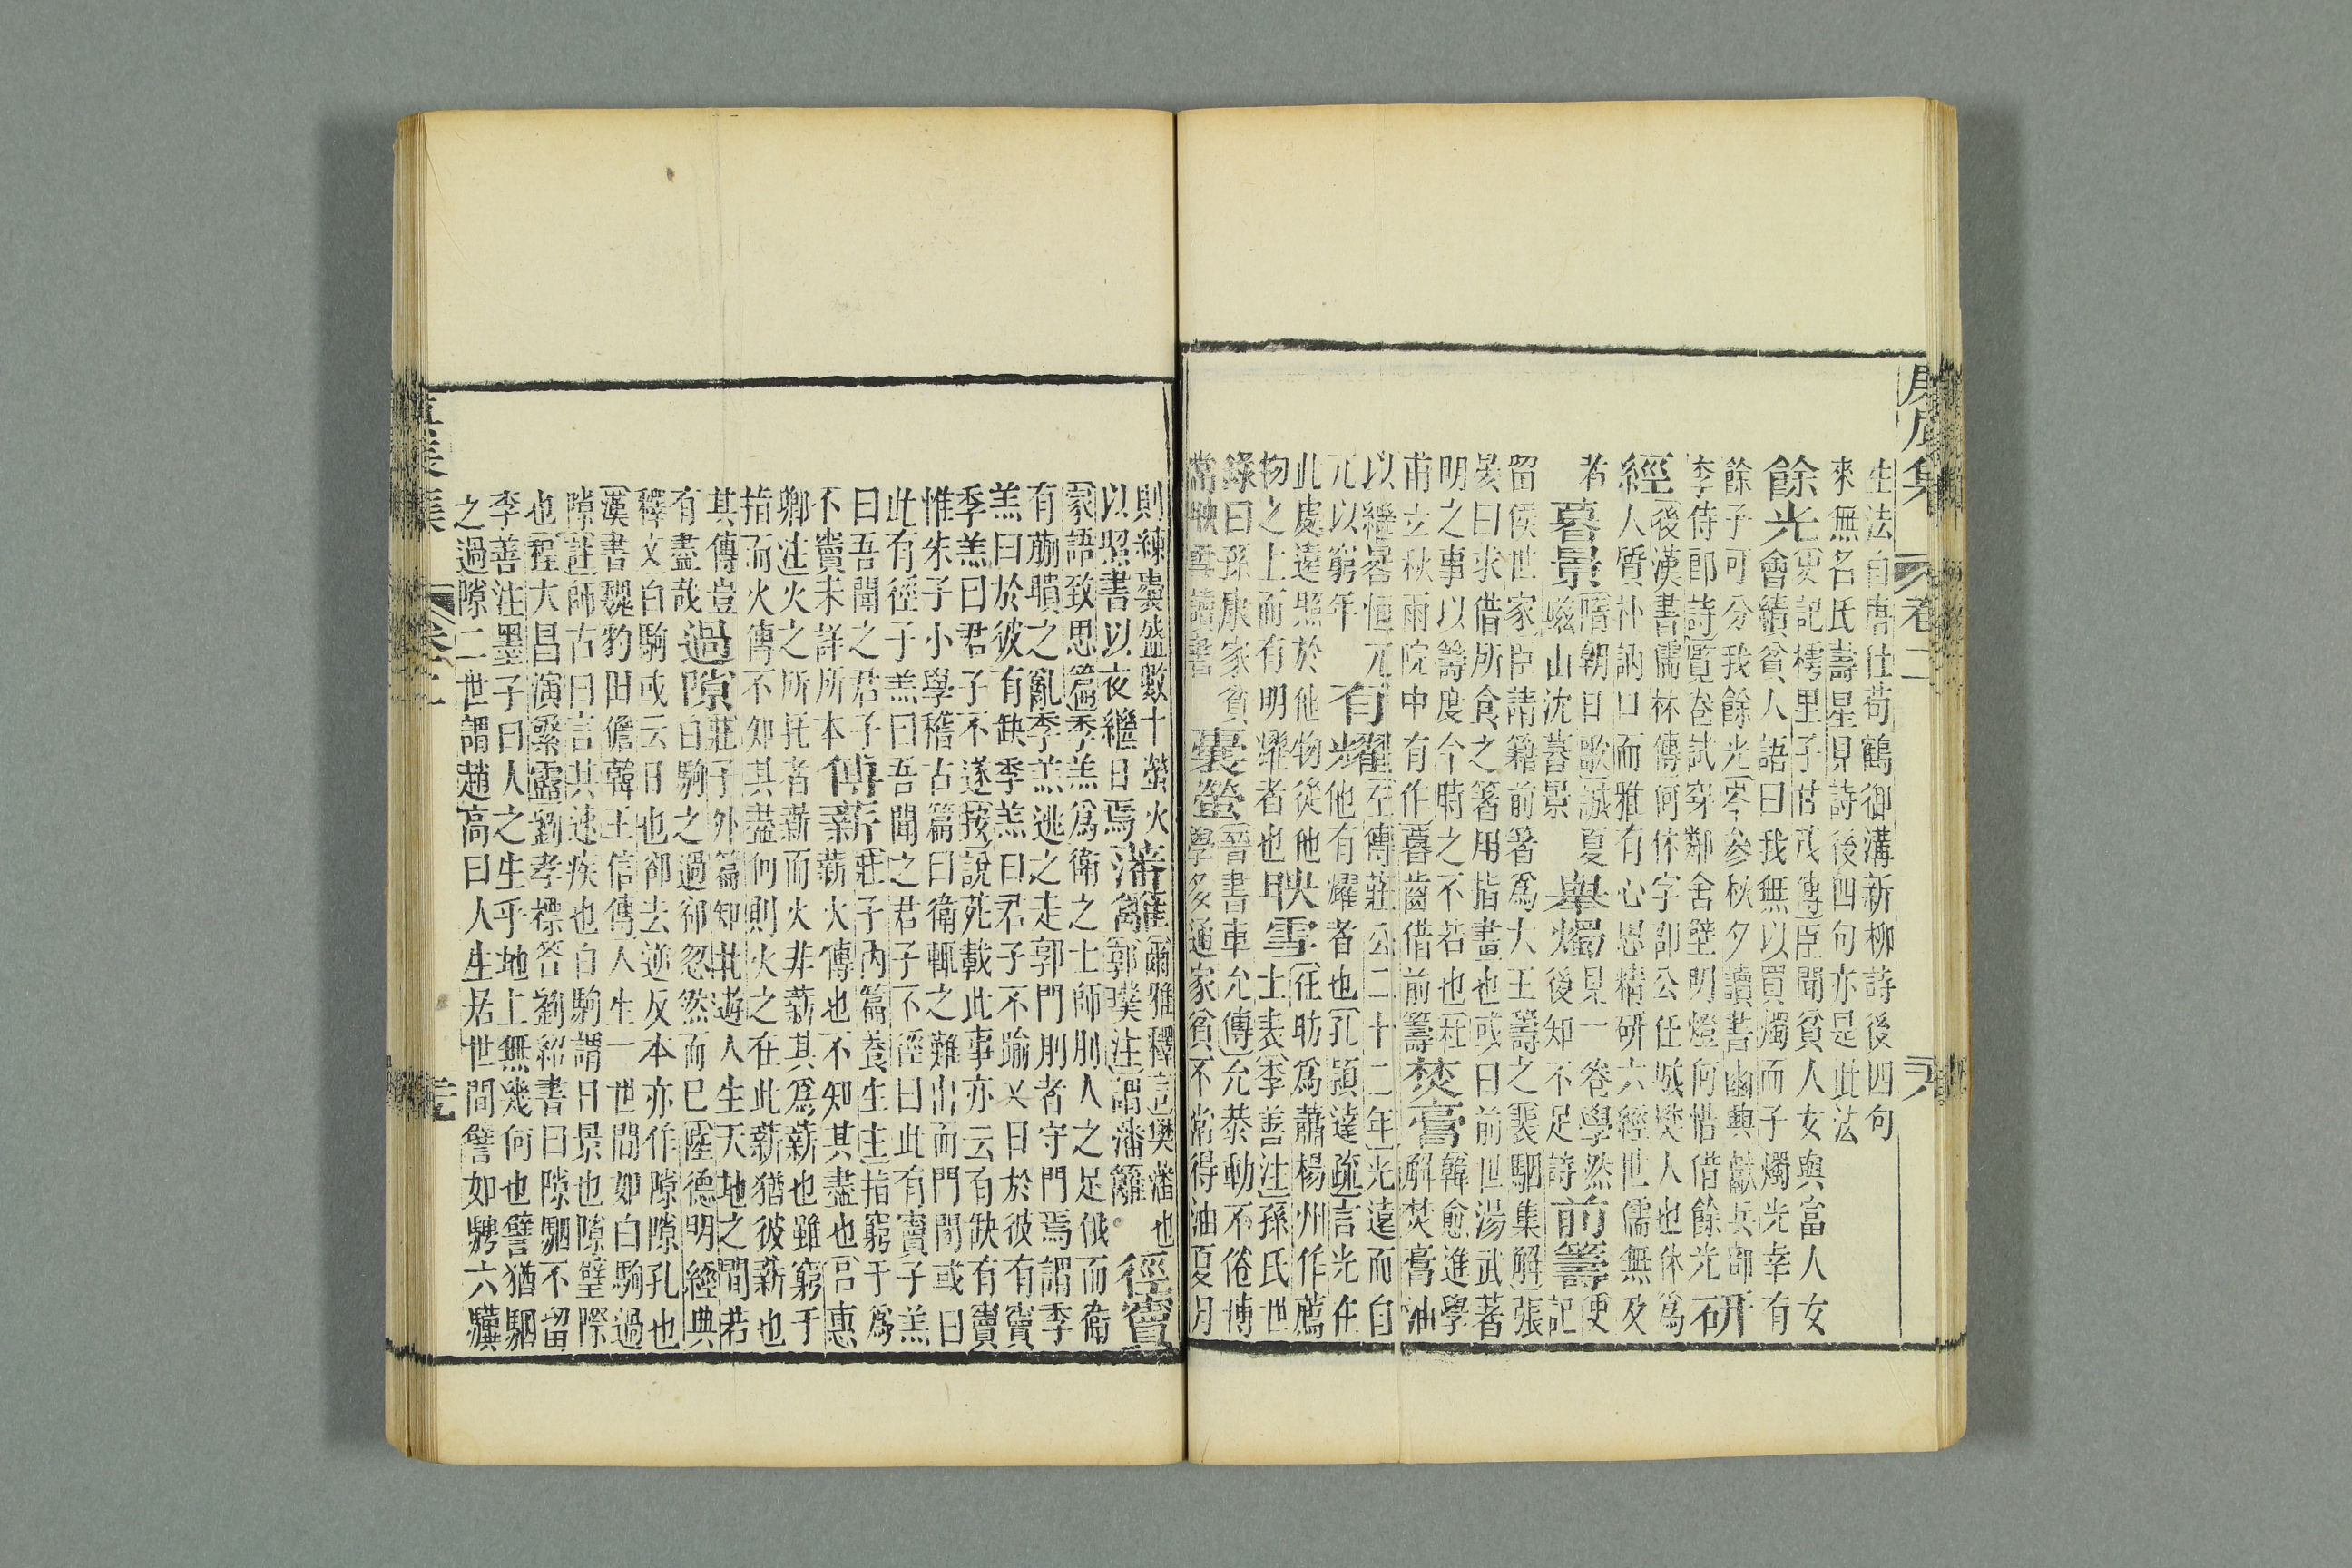 生法自唐仕苟鶴御溝新柳詩後四句
來無名氏壽星見詩後四句亦是此法
餘光
史記樗里子甘茂傳臣聞貧人女與富人女
會績貧人語曰我無以買燭而子燭光幸有
餘子可分我餘光岑參秋夕讀書幽興獻兵部
李侍郎詩覽卷試穿鄰舍壁明燈何惜借餘光
研經
後漢書儒林傳何休字邵公任城樊人也休為
人質朴訥口而雅有心思精研六經世儒無及
者
暮景
隋朝日歌誠夏
嵫山沈暮景
舉燭
見一卷學然
後知不足詩
前籌
史記
留侯世家臣請籍前箸爲大王籌之裴駰集解張
晏曰求借所食之箸用指畫也或曰前世湯武箸
明之事以籌度今時之不若也杜
甫立秋雨院中有作暮齒借前籌
焚膏
韓愈進學
解焚膏油
以繼晷恒兀
兀以窮年
有耀
左傳莊公二十二年光遠而自
他有耀者也孔頴達疏言光在
此處遠照於他物從他
物之上而有明耀者也
映雪
任昉爲蕭楊州作薦
士表李善注孫氏世
錄曰孫康家貧
常映雪讀書
囊螢
晉書車允傳允恭勤不倦博
學多通家貧不常得油夏月
則練囊盛數十螢火
以照書以夜繼日焉
藩籬
爾雅釋言樊藩也
郭璞注謂藩籬
徑竇
家語致思篇季羔爲衛之士師刖人之足俄而衛
有蒯聵之亂季羔逃之走郭門刖者守門焉謂季
羔曰於彼有缺季羔曰君子不踰又曰於彼有竇
季羔曰君子不遂按說苑載此事亦云有缺有竇
惟朱子小學稽古篇曰衛輒之難出而門閉或曰
此有徑子羔曰吾聞之君子不徑曰此有竇子羔
曰吾聞之君子
不竇未詳所本
傳薪
莊子內篇養生主指窮于爲
薪火傳也不知其盡也呂惠
鄉注火之所托者薪而火非薪其爲薪也雖窮于
指而火傳不知其盡何則火之在此薪猶彼薪也
其傳豈
有盡哉
過隙
莊子外篇知北遊人生天地之間若
白駒之過郤忽然而已陸德明經典
釋文白駒或云日也郤去逆反本亦作隙隙孔也
漢書魏豹田儋韓王信傳人生一世間如白駒過
隙註師古曰言其速疾也白駒謂日景也隙壁際
也程大昌演繁露劉孝標答劉紹書曰隙駟不留
李善注墨子曰人之生乎地上無幾何也譬猶駟
之過隙二世謂趙高曰人生居世間譬如騁六驥
卷二